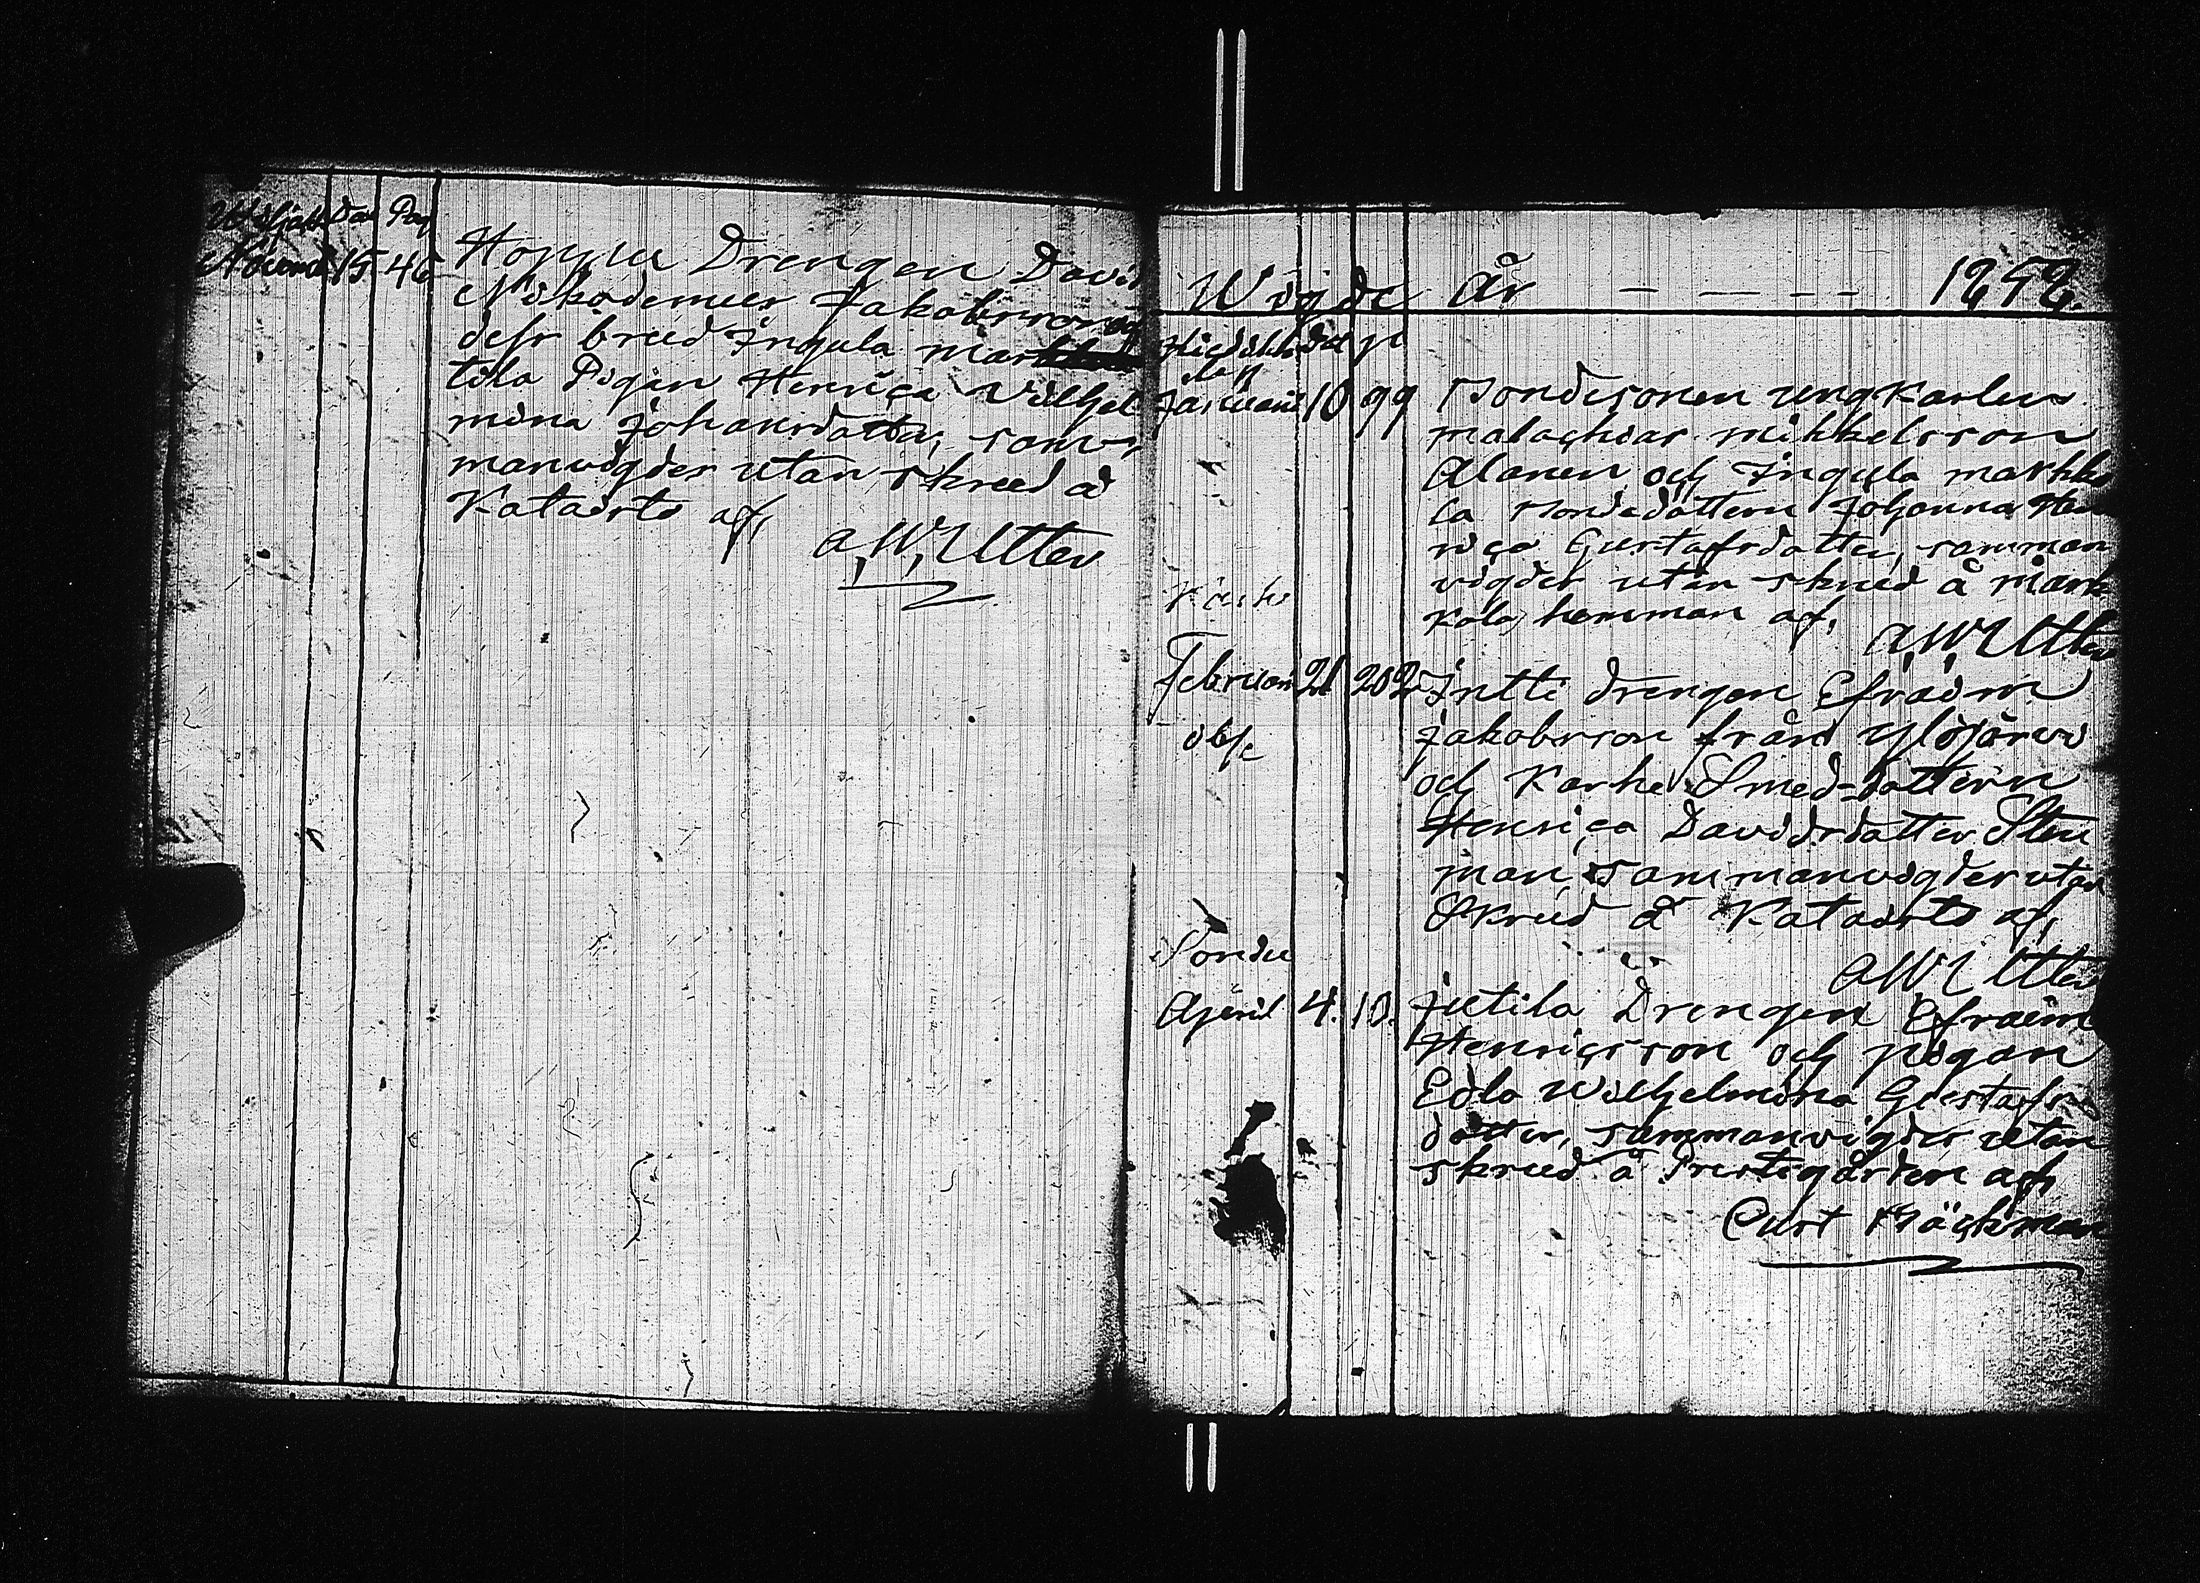 Dag Pag
15 46 Hoppu Drengen David
Nikodemus Jakobsson och
dess brud Ingula mark
tila Pigan Henrica Vilhel
mina Johansdotter, sam
manvigdes utan skrud å
Kataisto af,
A, W, Utter
Wigde År — — — — 1852.
dat p
Januarii 10 99 Bondesonen ungkarlen
malachias mihkelsson
Alanen och Ingula markko
la Bondedottern Johanna Hen
rica Gustafsdotter, samman
vigdes utan skrud å Mark
kola hemman af,
A, W, Utter
Karhe
Februari 21 202 Intti drengen Efraim
Jakobsson från Ylöjärvi
och Karhe Smed-dottern
Henrica Davidsdotter Sten
man, sammanvigdes utan
Skrud å Kataisto af,
A W Utter
April 4. 10. Jutila Drengen Efraim
Henricsson och pigan
Edla Wilhelmina Gustafs
dotter, sammanvigdes utan
skrud å Prestegården af
Curt Bäckman